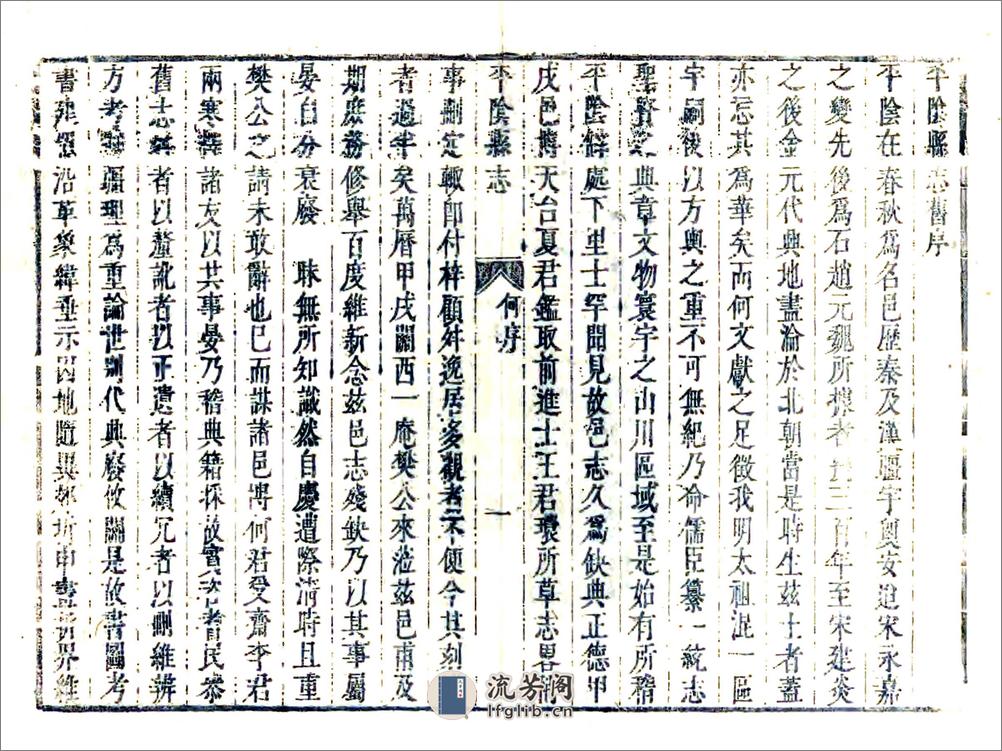 平陰縣志舊序
平陰在春秋爲名邑歷秦及漢疆宇奠安迨宋永嘉
之變先後爲石趙元魏所據者三百年至宋建炎
之後金元代興地盡淪於北朝當是時生茲土者蓋
亦忘其爲華矣而何文獻之足徵我明太祖混一區
宇嗣後以方輿之重不可無紀乃命儒臣纂一統志
聖賢之典章文物寰宇之山川區域至是始有所稽
平陰僻處下里士罕聞見故邑志久爲缺典正德甲
戌邑博天台夏君鑑取前進士王君環所草志畧
平陰縣志
何序
一
事刪定輙即付梓顧舛逸居多觀者不便今其刻
者過半矣萬曆甲戌關西一庵樊公來蒞茲邑甫及
期庶務修舉百度維新念茲邑志殘缺乃以其事屬
晏自分衰廢 昧無所知識然自慶遭際淸時且重
樊公之請未敢辭也已而謀諸邑博何君受齋李君
兩寒諸友以共事晏乃稽典籍採故實咨耆民叅
舊志舛者以釐訛者以正遺者以續冗者以刪維辨
方考疆理爲重論世則代典廢攸關是故書圖考
書建置沿革象緯垂示因地隨異郊圻由畫界維
流芳阁
lfglib.cn